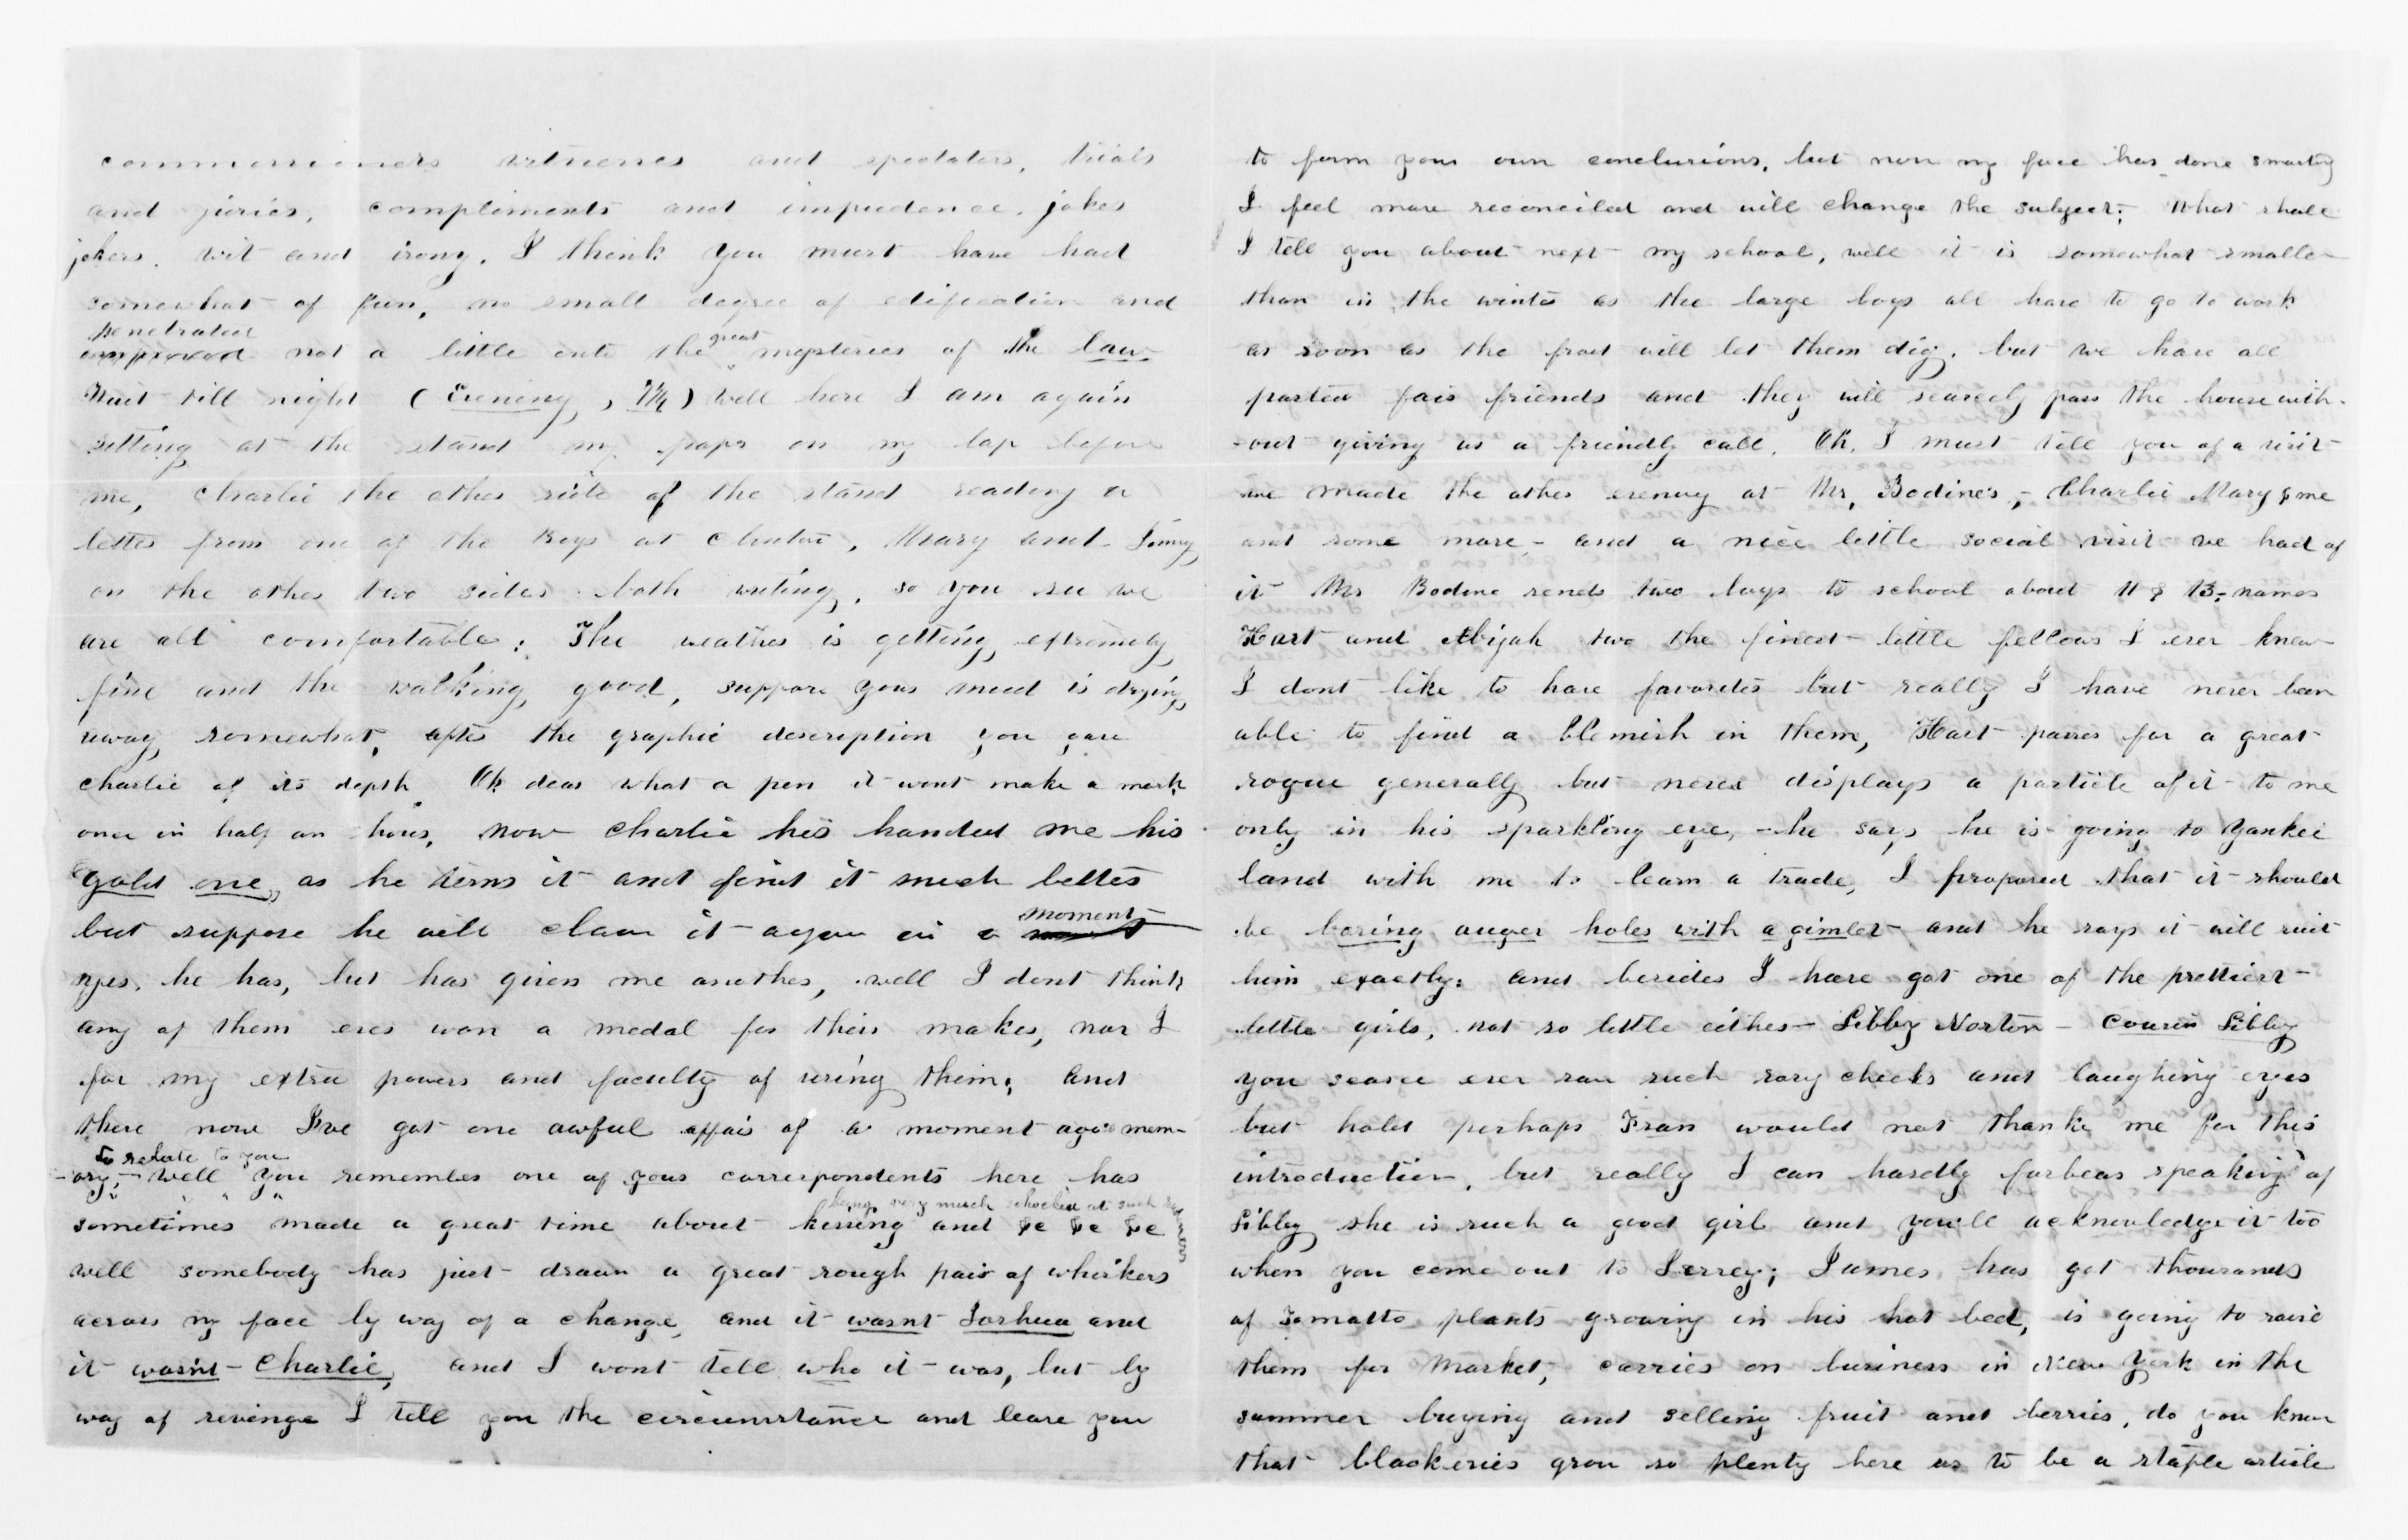 commissioners witnesses and spectators, trials
and juries, compliments and impudence, jokes
jokers, wit and irony. I think you must have had
somewhat of fun, no small degree of edification and
penetrated
not a little into the great mysteries of the law
Wait till night (Evening, 7¼) Well here I am again
setting at the stand my paper on my lap before
me, Charlie the other side of the stand reading a
letter from one of the Boys at Clinton, Mary and Jimmy
on the other two sides both writing, so you see we
are all comfortable; The weather is getting extremely
fine and the walking good, suppose your mud is drying
away somewhat, after the graphic description you gave
Charlie of its depth Oh dear what a pen it wont make a mark
once in half an hour, now Charlie has handed me his
"gold one," as he terms it and find it much better
but suppose he will claim it again in a moment
yes, he has, but has given me another, well I dont think
any of them ever won a medal for their maker, nor I
for my extra powers and faculty of using them; and
there now I've got one awful affair of a moment ago mem-
to relate to you
-ory, - well you remember one of your correspondents here has
being very much shocked at such
sometimes made a great time about kissing and &c &c &c
well somebody has just drawn a great rough pair of whiskers
across my face by way of a change, and it wasnt Joshua and
it wasnt - Charlie, and I wont tell who it was, but by
way of revenge I tell you the circumstance and leave you
to form your own conclusions, but now my face has done smarting
I feel more reconciled and will change the subject; What shall
I tell you about next - my school, well it is somewhat smaller
than in the winter as the large boys all have to go to work
as soon as the frost will let them dig. but we have all
parted fair friends and they will scarcely pass the house with-
-out giving us a friendly call. Oh, I must tell you of a visit
we made the other evening at Mr, Bodine's, - Charlie Mary & me
and some more - and a nice little social visit we had of
it Mr Bodine sends two boys to school about 11 & 13 - names
Hart and Abijah two the finest little fellows I ever knew
I dont like to have favorites but really I have never been
able to find a blemish in them, Hart passes for a great
rogue generally but never displays a particle of it to me
only in his sparkling eye, - he says he is going to Yankee
land with me to learn a trade, I proposed that it should
be boring auger holes with a gimlet and he says it will suit
him exactly; and besides I have got one of the prettiest
little girls, not so little either - Libby Norton - Cousin Libby
you scarce ever saw such rosy cheeks and laughing eyes
but hold perhaps Fran would not thank me for this
introduction, but really I can hardly forbear speaking of
Libby she is such a good girl and you'll acknowledge it too
when you come out to Jersey; James has got thousands
of Tomatto plants growing in his hot bed, is going to raise
them for Market, carries on business in New York in the
summer buying and selling fruit and berries, do you know
that blackeries grow so plenty here as to be a staple article